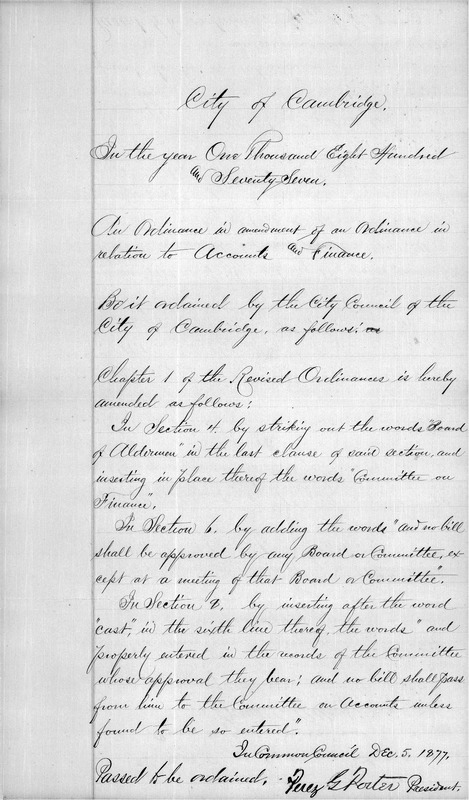 City of Cambridge.
In the year One Thousand Eight Hundred
and Seventy Seven.
An Ordinance in amendment of an Ordinance in
relation to Accounts and Finance.
Be it ordained by the City Council of the
City of Cambridge, as follows: as
Chapter 1 of the Revised Ordinances is hereby
amended as follows:
In Section 4. by striking out the words "Board
of Aldermen" in the last clause of said section, and
inserting in place thereof the words "Committee on
Finance".
In Section 6. by adding the words "and no bill
shall be approved by any Board or Committee, ex-
cept at a meeting of that Board or Committee".
In Section 8. by inserting after the word
"cast", in the sixth line thereof, the words "and
properly entered in the records of the Committee
whose approval they bear; and no bill shall pass
from him to the Committee on Accounts unless
found to be so entered".
In Common Council Dec. 5. 1877.
Passed to be ordained. Perez G. Porter President.